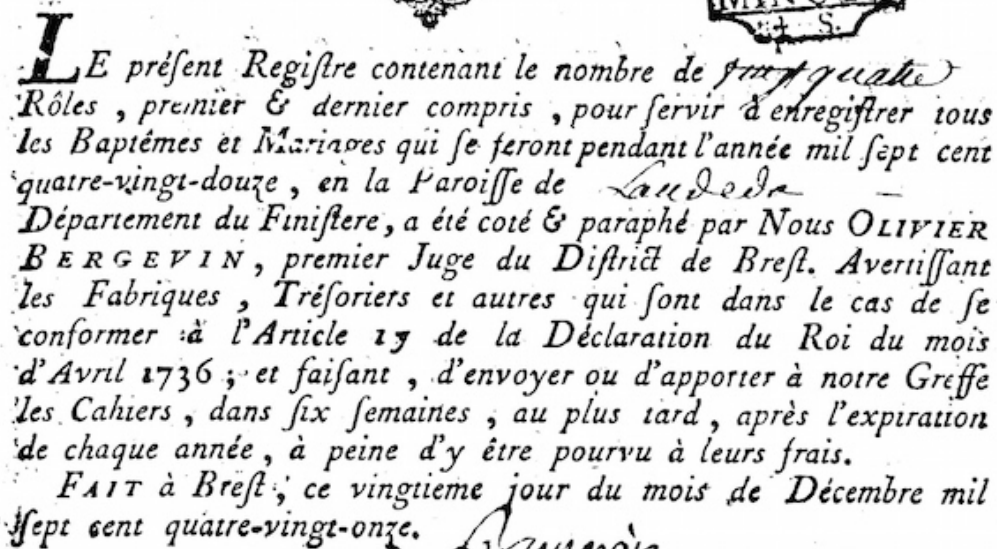 MINUTE
+ S.
LE préſent Regiſtre contenant le nombre de vingt quatre
Rôles, premier & dernier compris, pour ſervir à enregiſtrer tous
les Baptêmes et Mariages qui ſe feront pendant l'année mil ſept cent
quatre-vingt-douze, en la Paroiſſe de Landeda —
Département du Finiſtere, a été coté & paraphé par Nous OLIVIER
BERGEVIN, premier Juge du Diſtrict de Breſt. Avertiſſant
les Fabriques, Tréſoriers et autres qui ſont dans le cas de ſe
conformer à l'Article 17 de la Déclaration du Roi du mois
d'Avril 1736; et faiſant, d'envoyer ou d'apporter à notre Greffe
les Cahiers, dans ſix ſemaines, au plus tard, après l'expiration
de chaque année, à peine d'y être pourvu à leurs frais.
FAIT à Breſt, ce vingtieme jour du mois de Décembre mil
ſept cent quatre-vingt-onze.